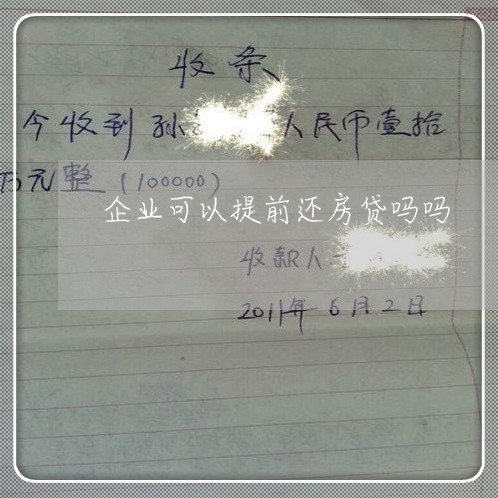 收条
今收到孙 人民币壹拾
万元整(100000)
企业可以提前还房贷吗吗
收款人
2011年6月2日